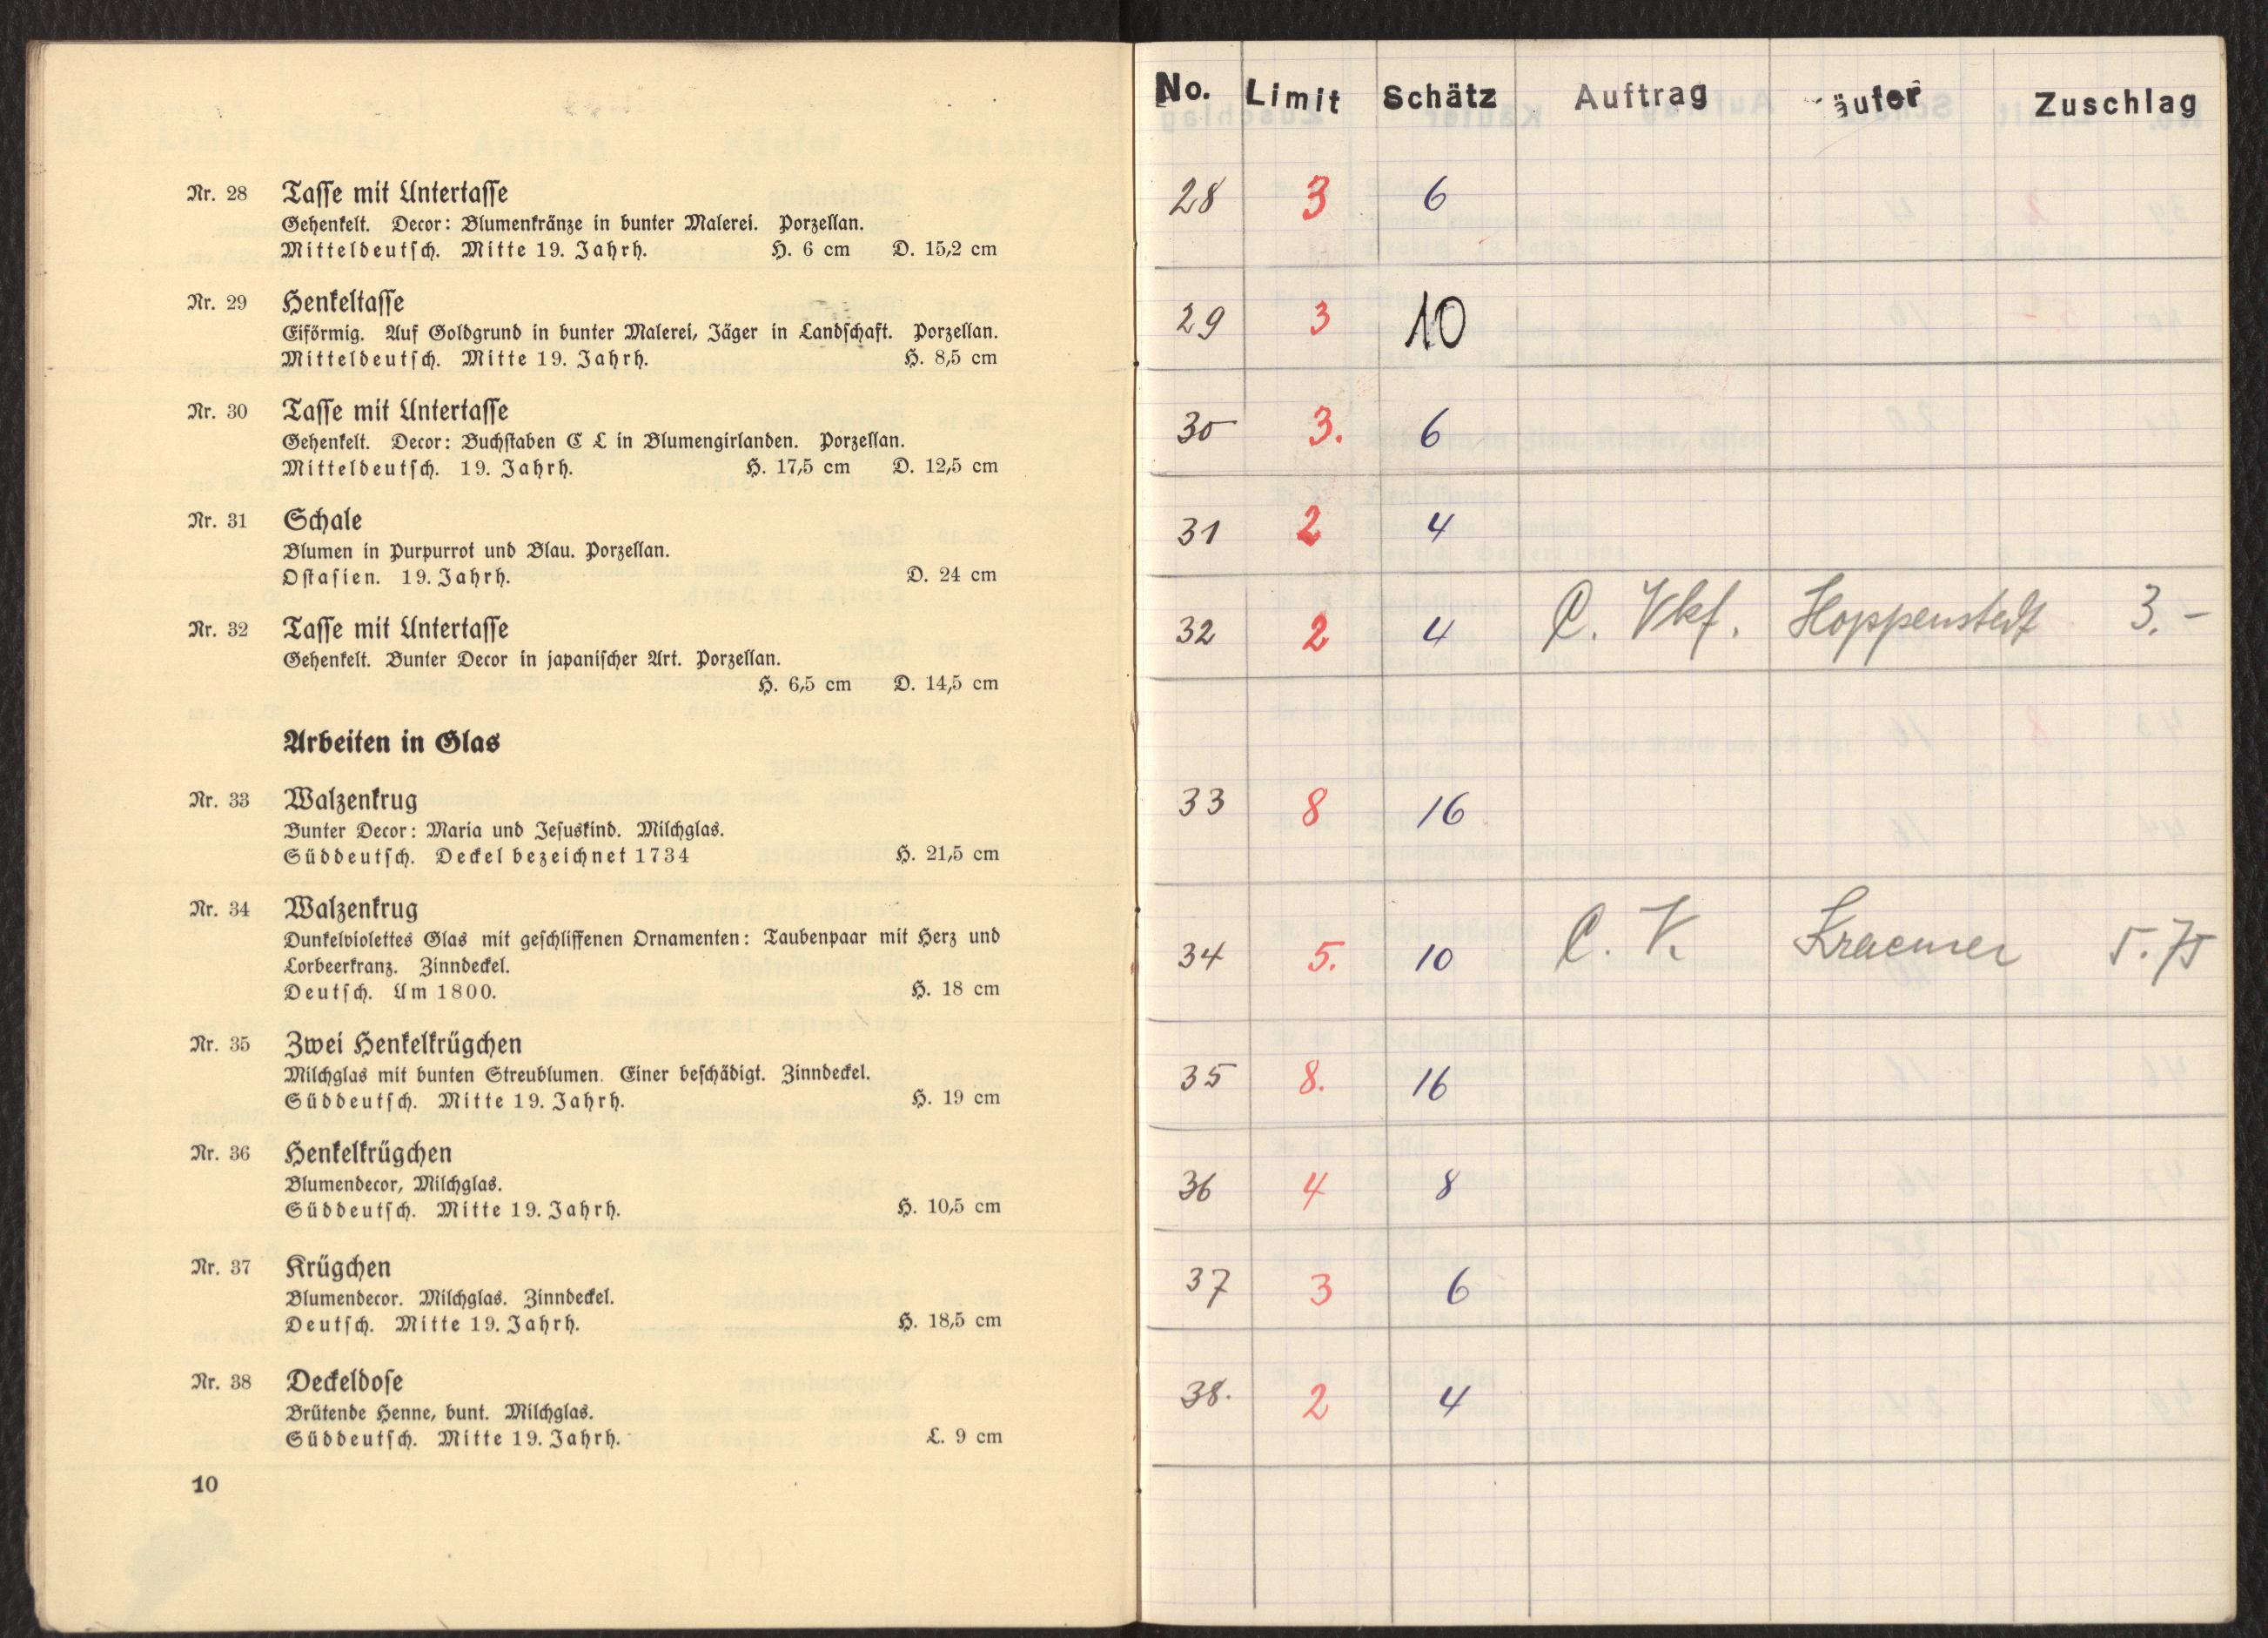 Nr. 28 Tasse mit Untertasse
Gehenkelt. Decor: Blumenkränze in bunter Malerei. Porzellan.
Mitteldeutsch. Mitte 19. Jahrh. H. 6 cm D. 15,2 cm
Nr. 29 Henkeltasse
Eiförmig. Auf Goldgrund in bunter Malerei, Jäger in Landschaft. Porzellan.
Mitteldeutsch. Mitte 19. Jahrh. H. 8,5 cm
Nr. 30 Tasse mit Untertasse
Gehenkelt. Decor: Buchstaben C L in Blumengirlanden. Porzellan.
Mitteldeutsch. 19. Jahrh. H. 17,5 cm D. 12,5 cm
Nr. 31 Schale
Blumen in Purpurrot und Blau. Porzellan.
Ostasien. 19. Jahrh. D. 24 cm
Nr. 32 Tasse mit Untertasse
Gehenkelt. Bunter Decor in japanischer Art. Porzellan.
H. 6,5 cm D. 14,5 cm
Arbeiten in Glas
Nr. 33 Walzenkrug
Bunter Decor: Maria und Jesuskind. Milchglas.
Süddeutsch. Deckel bezeichnet 1734 H. 21,5 cm
Nr. 34 Walzenkrug
Dunkelviolettes Glas mit geschliffenen Ornamenten: Taubenpaar mit Herz und
Lorbeerkranz. Zinndeckel.
Deutsch. Um 1800. H. 18 cm
Nr. 35 Zwei Henkelkrügchen
Milchglas mit bunten Streublumen. Einer beschädigt. Zinndeckel.
Süddeutsch. Mitte 19. Jahrh. H. 19 cm
Nr. 36 Henkelkrügchen
Blumendecor, Milchglas.
Süddeutsch. Mitte 19. Jahrh. H. 10,5 cm
Nr. 37 Krügchen
Blumendecor. Milchglas. Zinndeckel.
Deutsch. Mitte 19. Jahrh. H. 18,5 cm
Nr. 38 Deckeldose
Brütende Henne, bunt. Milchglas.
Süddeutsch. Mitte 19. Jahrh. L. 9 cm
10
No. Limit Schätz Auftrag äufer Zuschlag
28 3 6
29 3 10
30 3. 6
31 2 4
32 2 4 C. Vkf. Hoppenstedt 3.-
33 8 16
34 5. 10 C. V. Kraemer 5.75
35 8. 16
36 4 8
37 3 6
38. 2 4